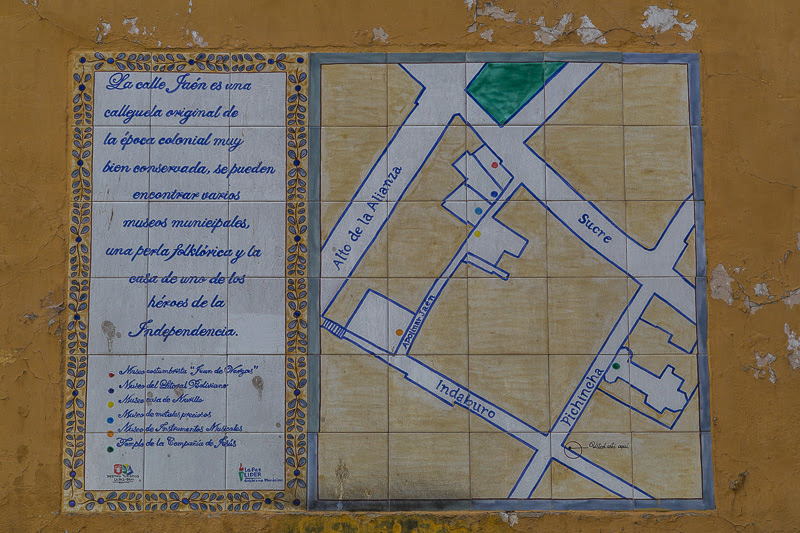 La calle Jaén es una
callejuela original de
la época colonial muy
bien conservada, se pueden
encontrar varios
museos municipales,
una perla folklórica y la
casa de uno de los
héroes de la
Independencia.
Museo costumbrista "Juan de Vargas"
Museo del Litoral Boliviano
Museo casa de Murillo
Museo de metales preciosos
Museo de Instrumentos Musicales
Templo de la Compañía de Jesús
La Paz
LIDER
Alto de la Alianza
Sucre
Apolinar Jaén
Indaburo
Pichincha
Usted está aquí